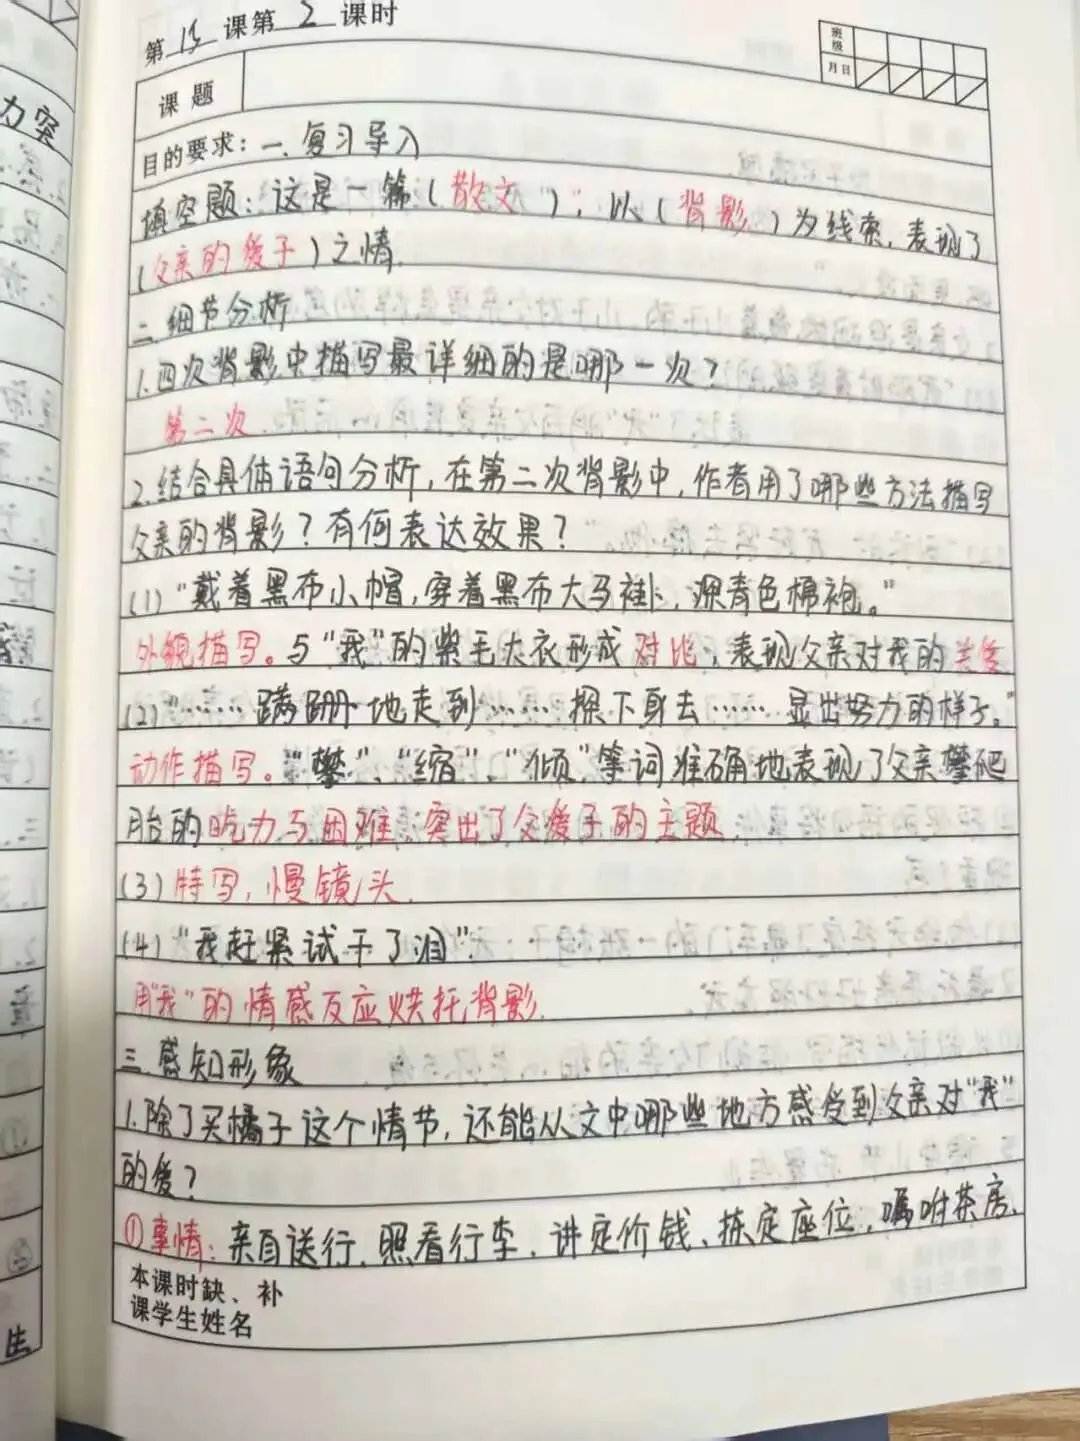 第 13 课第 2 课时
班级
月日
课题
目的要求：一. 复习导入
填空题：这是一篇（散文），以（背影）为线索，表现了
（父亲的爱子）之情.
二. 细节分析
1. 四次背影中描写最详细的是哪一次？
第二次.
2. 结合具体语句分析，在第二次背影中，作者用了哪些方法描写
父亲的背影？有何表达效果？
(1) "戴着黑布小帽，穿着黑布大马褂，深青色棉袍。"
外貌描写。与"我"的紫毛大衣形成对比，表现父亲对我的关爱
(2) "……蹒跚地走到……探下身去……显出努力的样子。"
动作描写。"攀"、"缩"、"倾"等词准确地表现了父亲攀爬
月台的吃力与困难，突出了父爱子的主题
(3) 特写，慢镜头.
(4) "我赶紧试干了泪"
用"我"的情感反应烘托背影.
三. 感知形象
1. 除了买橘子这个情节，还能从文中哪些地方感受到父亲对"我"
的爱？
①事情：亲自送行、照看行李、讲定价钱、拣定座位，嘱咐茶房、
本课时缺、补
课学生姓名
力突